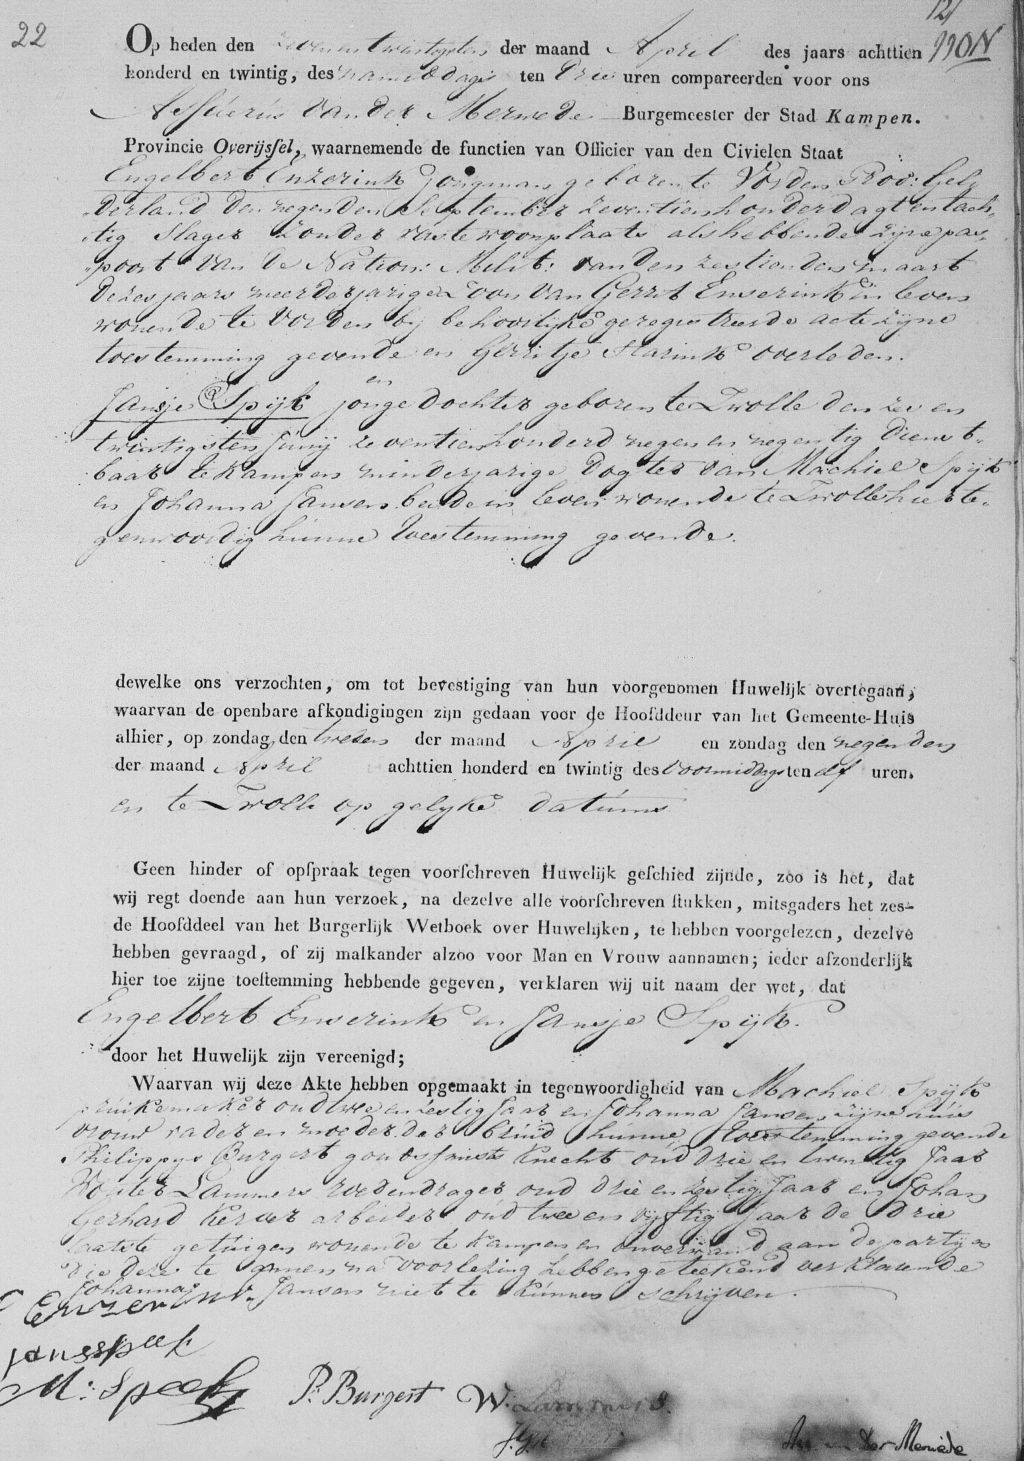 22
12
Op heden den zevenentwintigsten der maand April des jaars achttien
honderd en twintig, des namiddags ten drie uren compareerden voor ons
Assuerus van der Merwede Burgemeester der Stad Kampen.
Provincie Overijssel, waarnemende de functien van Officier van den Civielen Staat
Engelbert Enzerink jongman geboren te Vorden Prov: Gel
derland den negenden September zeventienhonderd agt en tach
tig Slager zonder vaste woonplaats als hebbende zijne pas
poort van de Nation: Milit: van den zestienden maart
dezes jaars meerderjarige Zoon van Gerrit Enserink in leven
wonende te Vorden bij behoorlijke geregistreerde acte zijne
toestemming gevende en Gerritje Harink overleden.
en
Jansje Spijk jonge dochter geboren te Zwolle den zes en
twintigsten Junij zeventienhonderd negen en negentig dienst
baar te Kampen minderjarige dogter van Machiel Spijk
en Johanna Jansen beide in leven wonende te Zwolle hierte
genwoordig hunne toestemming gevende.
dewelke ons verzochten, om tot bevestiging van hun voorgenomen Huwelijk overtegaan,
waarvan de openbare afkondigingen zijn gedaan voor de Hoofddeur van het Gemeente-Huis
alhier, op zondag den tweden der maand April en zondag den negenden
der maand April achttien honderd en twintig des voormiddags ten elf uren.
en te Zwolle op gelyke datums
Geen hinder of opspraak tegen voorschreven Huwelijk geschied zijnde, zoo is het, dat
wij regt doende aan hun verzoek, na dezelve alle voorschreven stukken, mitsgaders het zes-
de Hoofddeel van het Burgerlijk Wetboek over Huwelijken, te hebben voorgelezen, dezelve
hebben gevraagd, of zij malkander alzoo voor Man en Vrouw aannamen; ieder afzonderlijk
hier toe zijne toestemming hebbende gegeven, verklaren wij uit naam der wet, dat
Engelbert Enserink en Jansje Spijk.
door het Huwelijk zijn vereenigd;
Waarvan wij deze Akte hebben opgemaakt in tegenwoordigheid van Machiel Spijk
pruikemaker oud twee en zestig Jaar en Johanna Jansen zijne huis
vrouw vader en moeder der bruid hunne toestemming gevende
Philippus Burgert goudsmits knecht oud drie en twintig Jaar
Wolter Lammers zoedendrager oud drie en zestig Jaar en Johan
Gerhard Kerver arbeider oud twee en vyftig Jaar de drie
laatste getuigen wonende te Kampen en onverwand aan de partijen
die deze te zamen na voorlezing hebben geteekend verklarende
Johanna Jansen niet te kunnen schrijven.
E Enzerink
jans speek
M: Speek
P. Burgert W: Lammers.
der Merwede